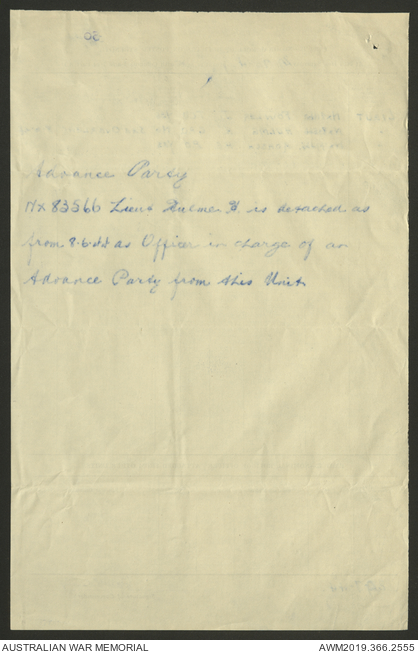 Advance Party
NX 83566 Lieut Hulme H. is detached as
from 8.6.44 as Officer in charge of an
Advance Party from this Unit
AUSTRALIAN WAR MEMORIAL
AWM2019.366.2555